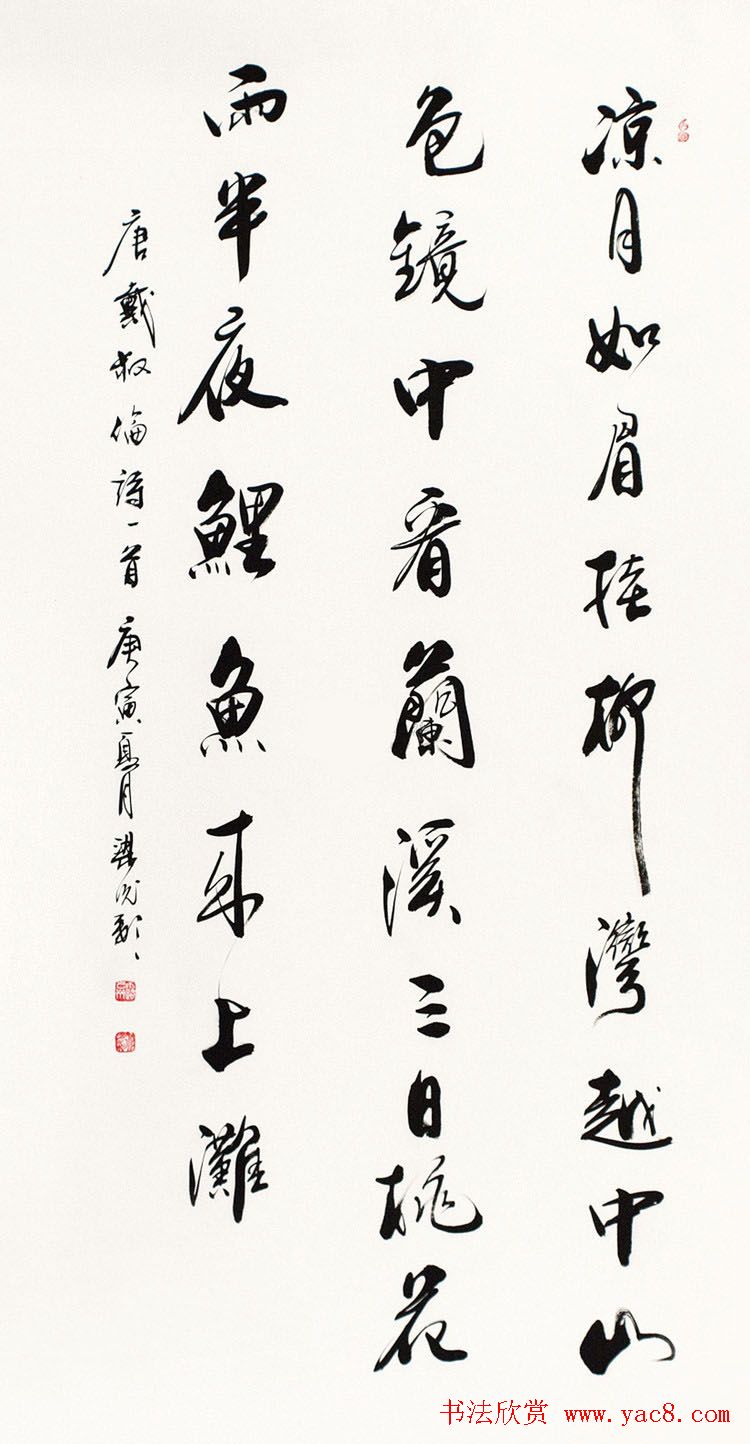 凉月如眉挂柳灣越中山
色鏡中看蘭溪三日桃花
雨半夜鯉魚来上灘
唐戴叔倫詩一首庚寅夏月梁
书法欣赏 www.yac8.com